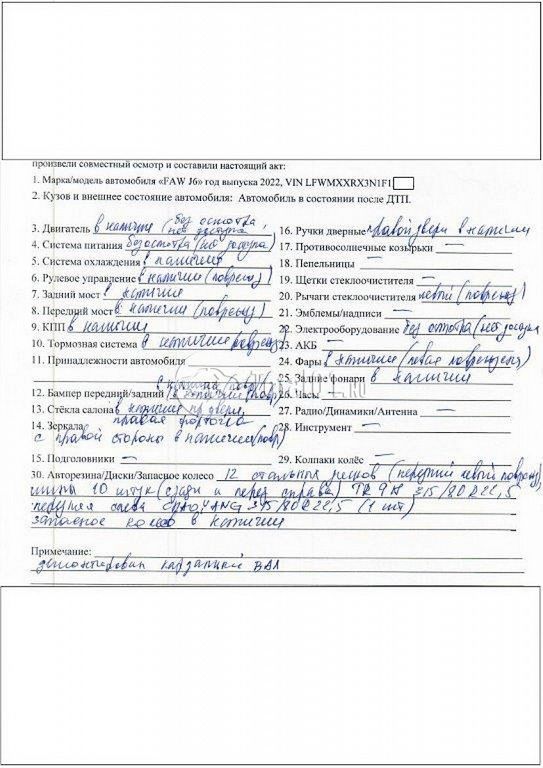 произвели совместный осмотр и составили настоящий акт:
1. Марка/модель автомобиля «FAW J6» год выпуска 2022, VIN LFWMXXRX3N1F1
2. Кузов и внешнее состояние автомобиля: Автомобиль в состоянии после ДТП.
3. Двигатель в наличии (без осмотра, нет доступа)
4. Система питания без осмотра (нет доступа)
5. Система охлаждения в наличии
6. Рулевое управление в наличии (поврежд)
7. Задний мост в наличии
8. Передний мост в наличии (поврежд)
9. КПП в наличии
10. Тормозная система в наличии поврежд
11. Принадлежности автомобиля
12. Бампер передний/задний в наличии (повр)
13. Стёкла салона в наличии пр двери,
правая форточка
14. Зеркала
с правой стороны в наличии (повр)
15. Подголовники —
16. Ручки дверные правой двери в наличии
17. Противосолнечные козырьки —
18. Пепельницы —
19. Щетки стеклоочистителя —
20. Рычаги стеклоочистителя левой (поврежд)
21. Эмблемы/надписи —
22. Электрооборудование без осмотра (нет доступа
23. АКБ —
24. Фары в наличии (левая повреждена)
25. Задние фонари в наличии
26. Часы —
27. Радио/Динамики/Антенна —
28. Инструмент —
29. Колпаки колёс —
30. Авторезина/Диски/Запасное колесо 12 стальных дисков (передний левый поврежд),
шины 10 штук (сзади и перед справа) 315/80 R22,5
передняя слева CHAOYANG 315/80 R22,5 (1 шт)
запасное колесо в наличии
Примечание:
демонтирован карданный вал